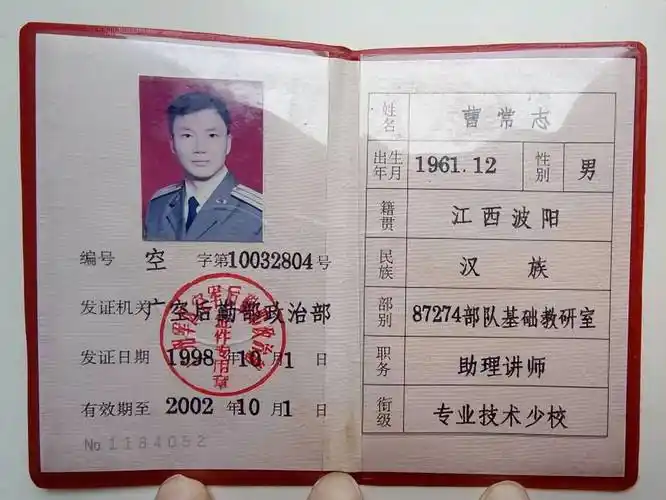 编号 空 字第10032804号
发证机关 广空后勤部政治部
发证日期 1998年10月1日
有效期至 2002年10月1日
No 1184052
姓名 曹常志
出生年月 1961.12 性别 男
籍贯 江西波阳
民族 汉 族
部别 87274部队基础教研室
职务 助理讲师
衔级 专业技术少校